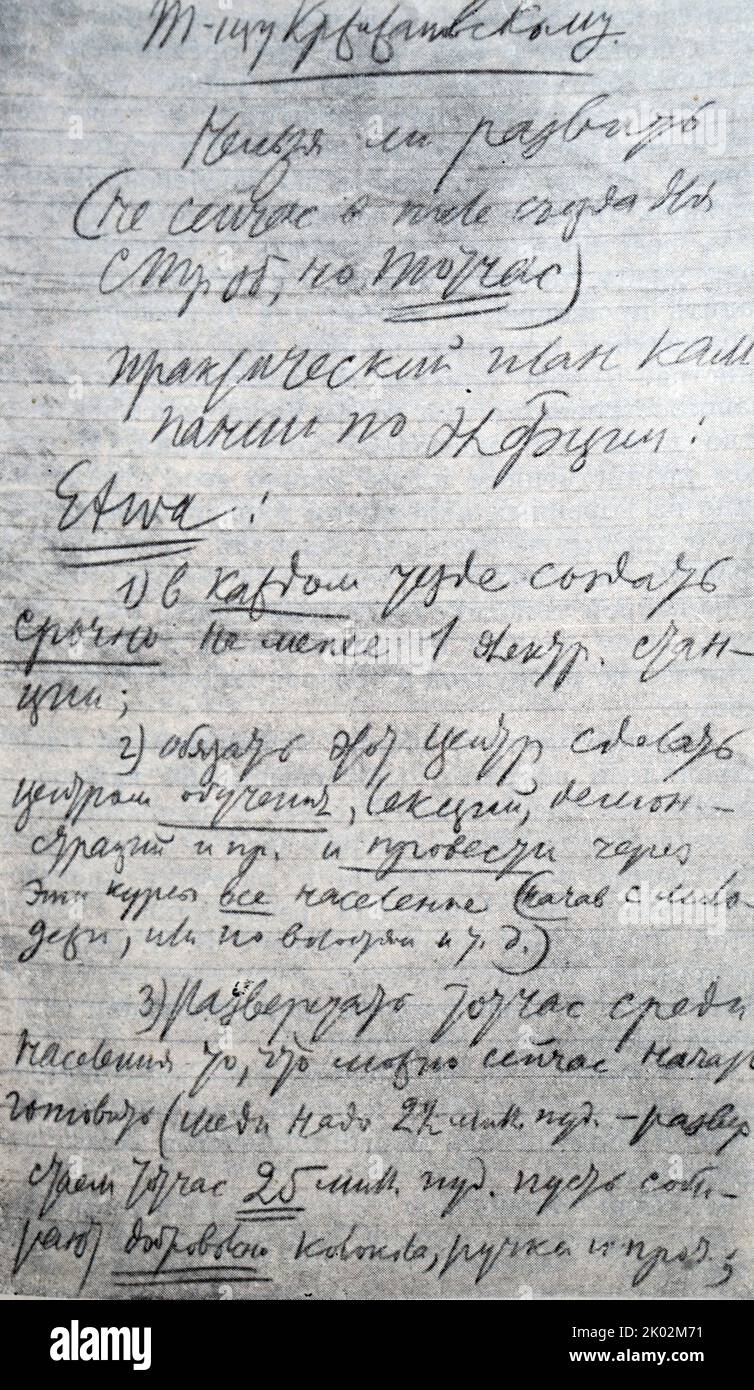 Т-щу Кржижановскому.
Нельзя ли развить
(не сейчас, а после съезда для
СТО, но тотчас)
практический план кам
пании по эл-фикции:
Etwa:
1) в каждом уезде создать
срочно не менее 1 электр. стан-
ции;
2) обязать этот центр сделать
центром обучения, лекций, демон-
страций и пр. и провести через
эти курсы все население (начав с моло-
дежи, или по волостям и т. д.)
3) Разверстать тотчас среди
населения то, что можно сейчас начать
готовить (меди надо 2½ мил. пуд. – развер
стаем тотчас 25 мил. пуд. пусть соби-
рают добровольно колокола, ручки и проч.;
alamy
Image ID: 2K02M71
www.alamy.com